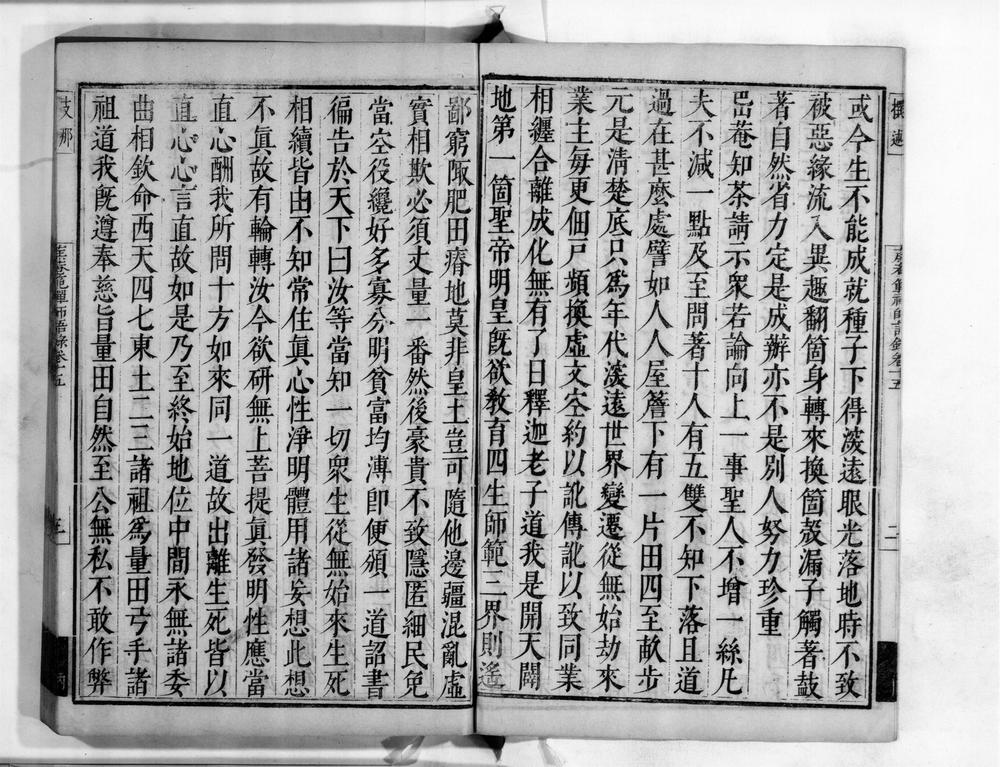 或今生不能成就種子下得深遠眼光落地時不致
被惡緣流入異趣翻箇身轉來換箇殼漏子觸著鼓
著自然省力定是成辦亦不是別人努力珍重
岊菴知茶請示眾若論向上一事聖人不增一絲凡
夫不減一點及至問著十人有五雙不知下落且道
過在甚麼處譬如人人屋簷下有一片田四至畝步
元是淸楚底只爲年代濅遠世界變遷從無始劫來
業主每更佃戸頻換虛文空約以訛傳訛以致同業
相纏合離成化無有了日釋迦老子道我是開天闢
地第一箇聖帝明皇旣欲敎育四生師範三界則遙
鄙窮陬肥田瘠地莫非皇土豈可隨他邊疆混亂虛
實相欺必須丈量一番然後豪貴不致隱匿細民免
當空役纔好多寡分明貧富均溥卽便頒一道詔書
徧告於天下曰汝等當知一切衆生從無始來生死
相續皆由不知常住眞心性淨明體用諸妄想此想
不眞故有輪轉汝今欲硏無上菩提眞發明性應當
直心酬我所問十方如來同一道故出離生死皆以
直心心言直故如是乃至終始地位中間永無諸委
曲相欽命西天四七東土二三諸祖爲量田弓手諸
祖道我旣遵奉慈旨量田自然至公無私不敢作弊